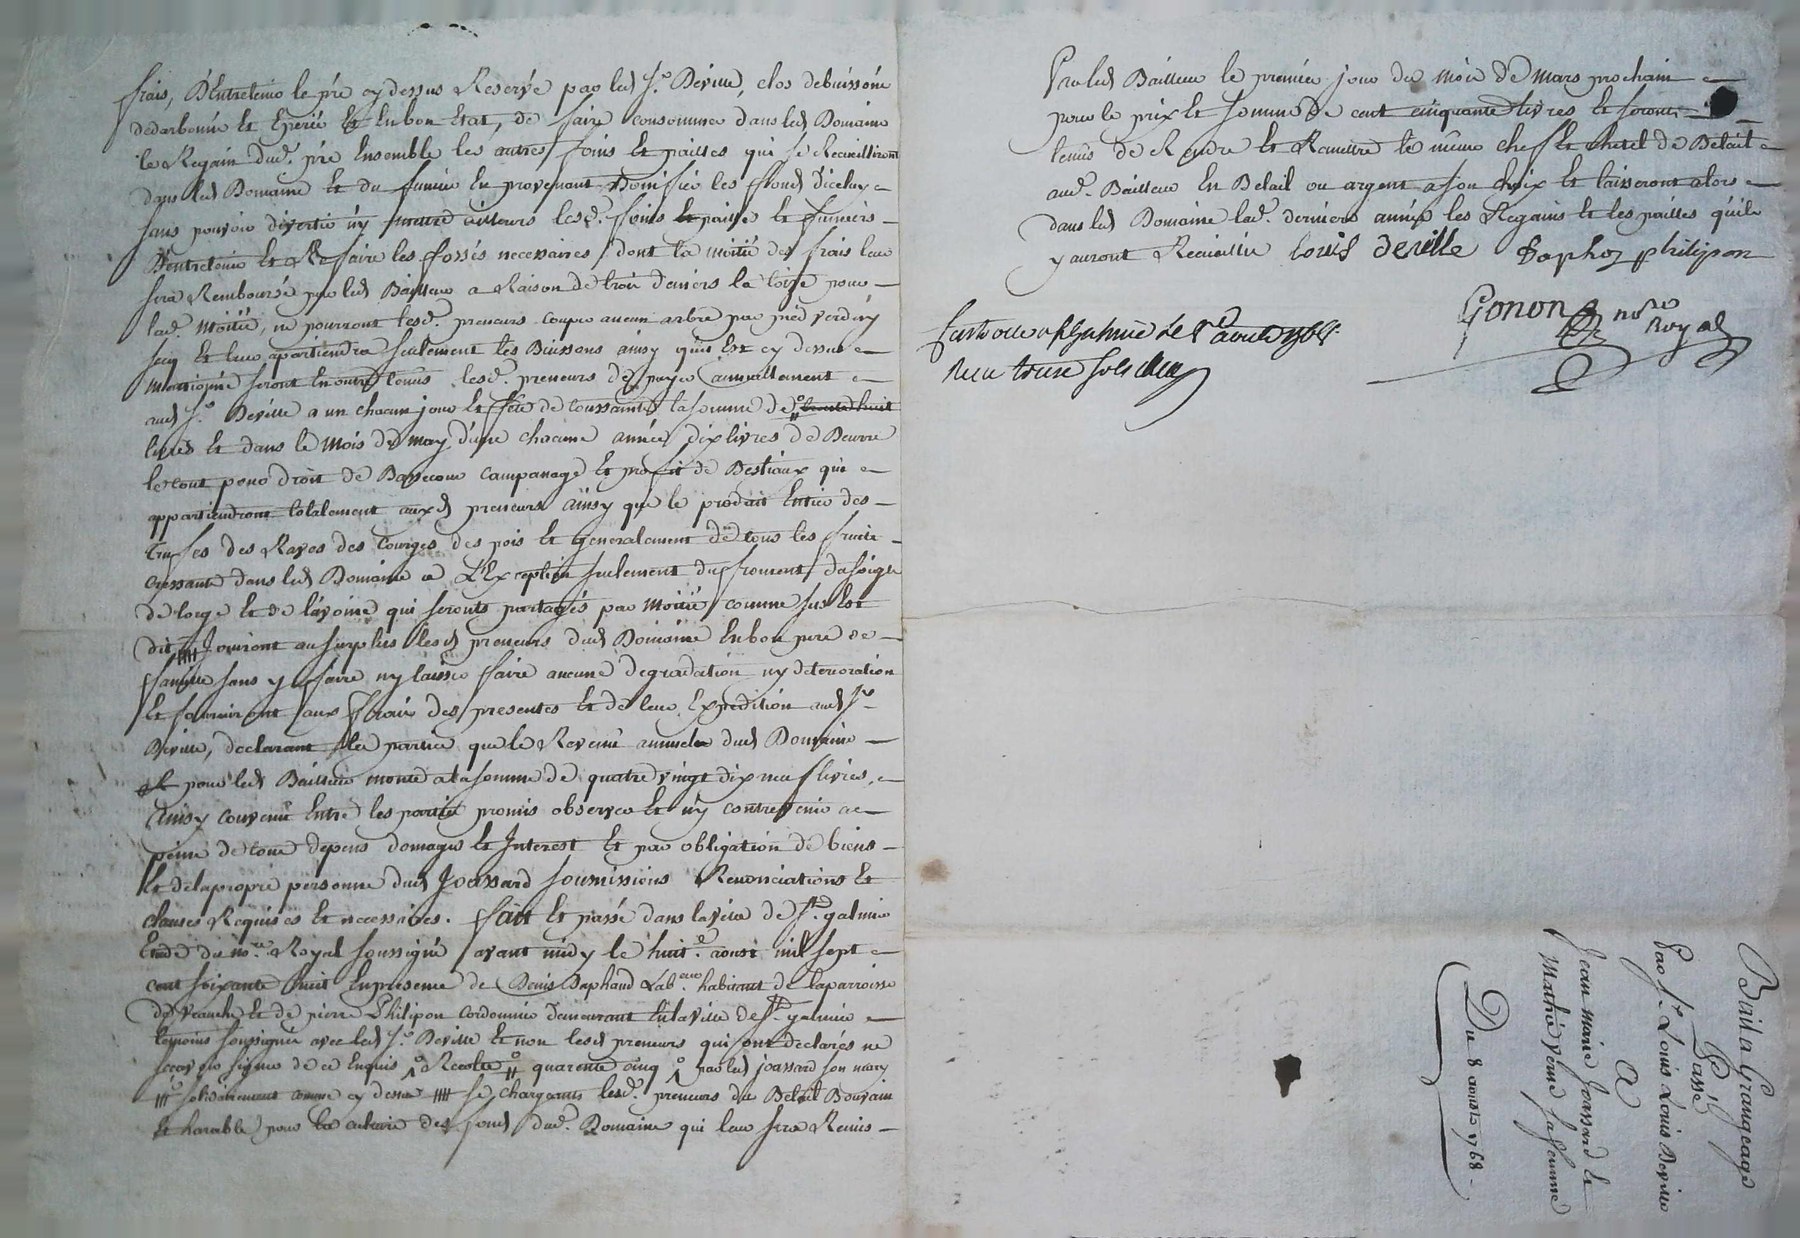 frais, D'Entretenir le pré cy dessus Reservé par led Sr. Deville, clos debuissons
et Enbon Etat, de faire consommer dans led Domaine
le Regain dud. pré Ensemble les autres foins Et pailles qui se Recueilliront
dans led Domaine Et du fumier En provenant Bonifier les fonds d'iceluy
sans pouvoir divertir ny mettre ailleurs lesd. foins Et pailles Et fumiers
D'entretenir Et Refaire les fossés necessaires dont la moitié des frais leur
sera Remboursée par led Bailleur a Raison de trois deniers la toise pour
lad. Moitié, ne pourront lesd. preneurs couper aucun arbre par pied verd ny
secq Et leur apartiendra seulement les Buissons ainsy quil Est cy dessus
Mentionné seront Enoutre tenus lesd. preneurs de payer annuellement
aud Sr. Deville a un chacun jour Et fête de toussaints la somme de
livres Et dans le Mois de may d'une chacune année dix livres de Beurre
le tout pour droit de Bassecour campanage Et profit de Bestiaux qui
appartiendront totalement auxd preneurs ainsy que le produit Entier des
trufes des Raves des Courges des pois Et generalement de tous les fruits
croissants dans led Domaine a L'Exception seulement du froment du soigle
de lorge Et de lavoine qui seront partagés par Moitié comme sus Est
dit Jouiront au surplus lesd preneurs dud Domaine Enbon pere de
famille sans y faire ny laisser faire aucune degradation ny deterioration
Et fourniront aux frais des presentes Et de leur Expedition aud Sr
Deville, declarant les parties que le Revenu annuel dud Domaine
pour led Bailleur monte a la somme de quatre vingt dix neuf livres,
Ainsy convenu Entre les parties promis observer Et n'y contrevenir a
peine de tous depens domages Et Interest Et par obligation de biens
Et de la propre personne dud Joassard soumissions Renonciations Et
clauses Requises Et necessaires. fait Et passé dans la ville de St. galmier
Etude du nore. Royal soussigné avant midy le huite. aoust mil sept
cent soixante huit En presence de Denis Saphand Labeur. habitant de la parroisse
de veauche Et de pierre Philipon cordonnier demeurant En la ville de St. galmier
temoins soussignés avec led Sr. Deville Et non lesd preneurs qui ont déclarés ne
sçavoir signer de ce Enquis Récolte quarente cinq par led joassard son mary
solidairement comme cy dessus se chargeants lesd. preneurs du Betail Bouvain
Et harable pour la culture des fonds dud. Domaine qui leur sera Remis
Par led Bailleur le premier jour du mois de mars prochain
pour le prix Et somme de cent cinquante livres Et seront
tenus de Rendre Et Remettre le même chef Et chetel de Betail
aud. Bailleur En Betail ou argent a son choix Et laisseront alors
dans led Domaine lad. derniere année les Regains Et les pailles quils
y auront Recueillis louis deville Saphoz philipon
Gonon nore Royal
a St galmier Le 8e aoust 1768
Reçu treize sols
Bail a Grangeage
Passé
Par Sr. Louis Louis Deville
A
Jean Marie Joassard Et
Mathie verne sa femme
Du 8 aoust 1768